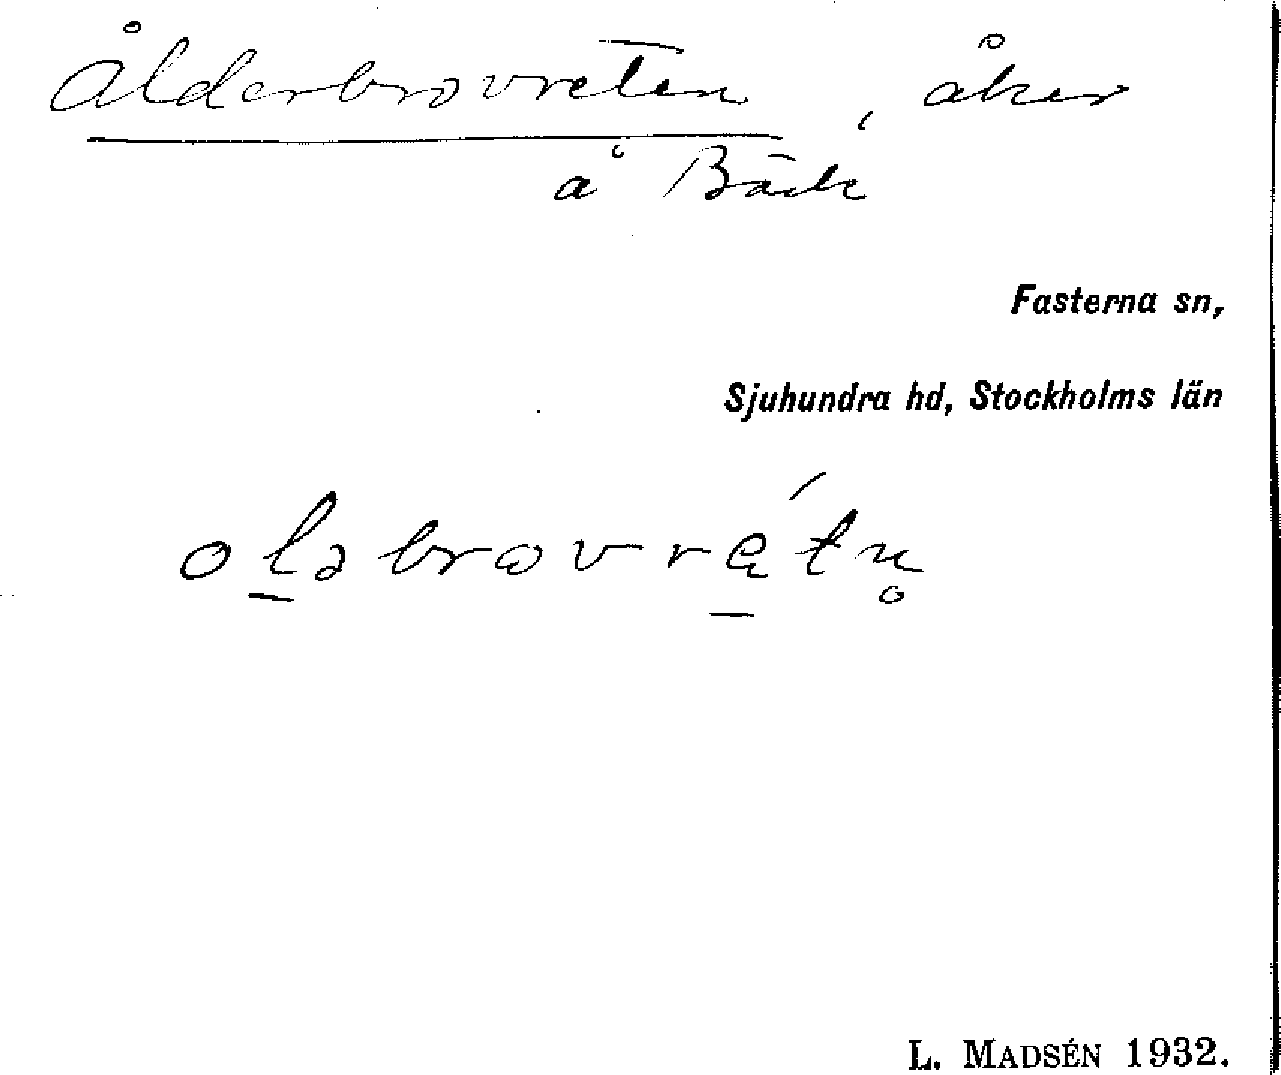 Ålderbrovreten, åker
å Bäck
Fasterna sn,
Sjuhundra hd, Stockholms län
L. MADSÉN 1932.